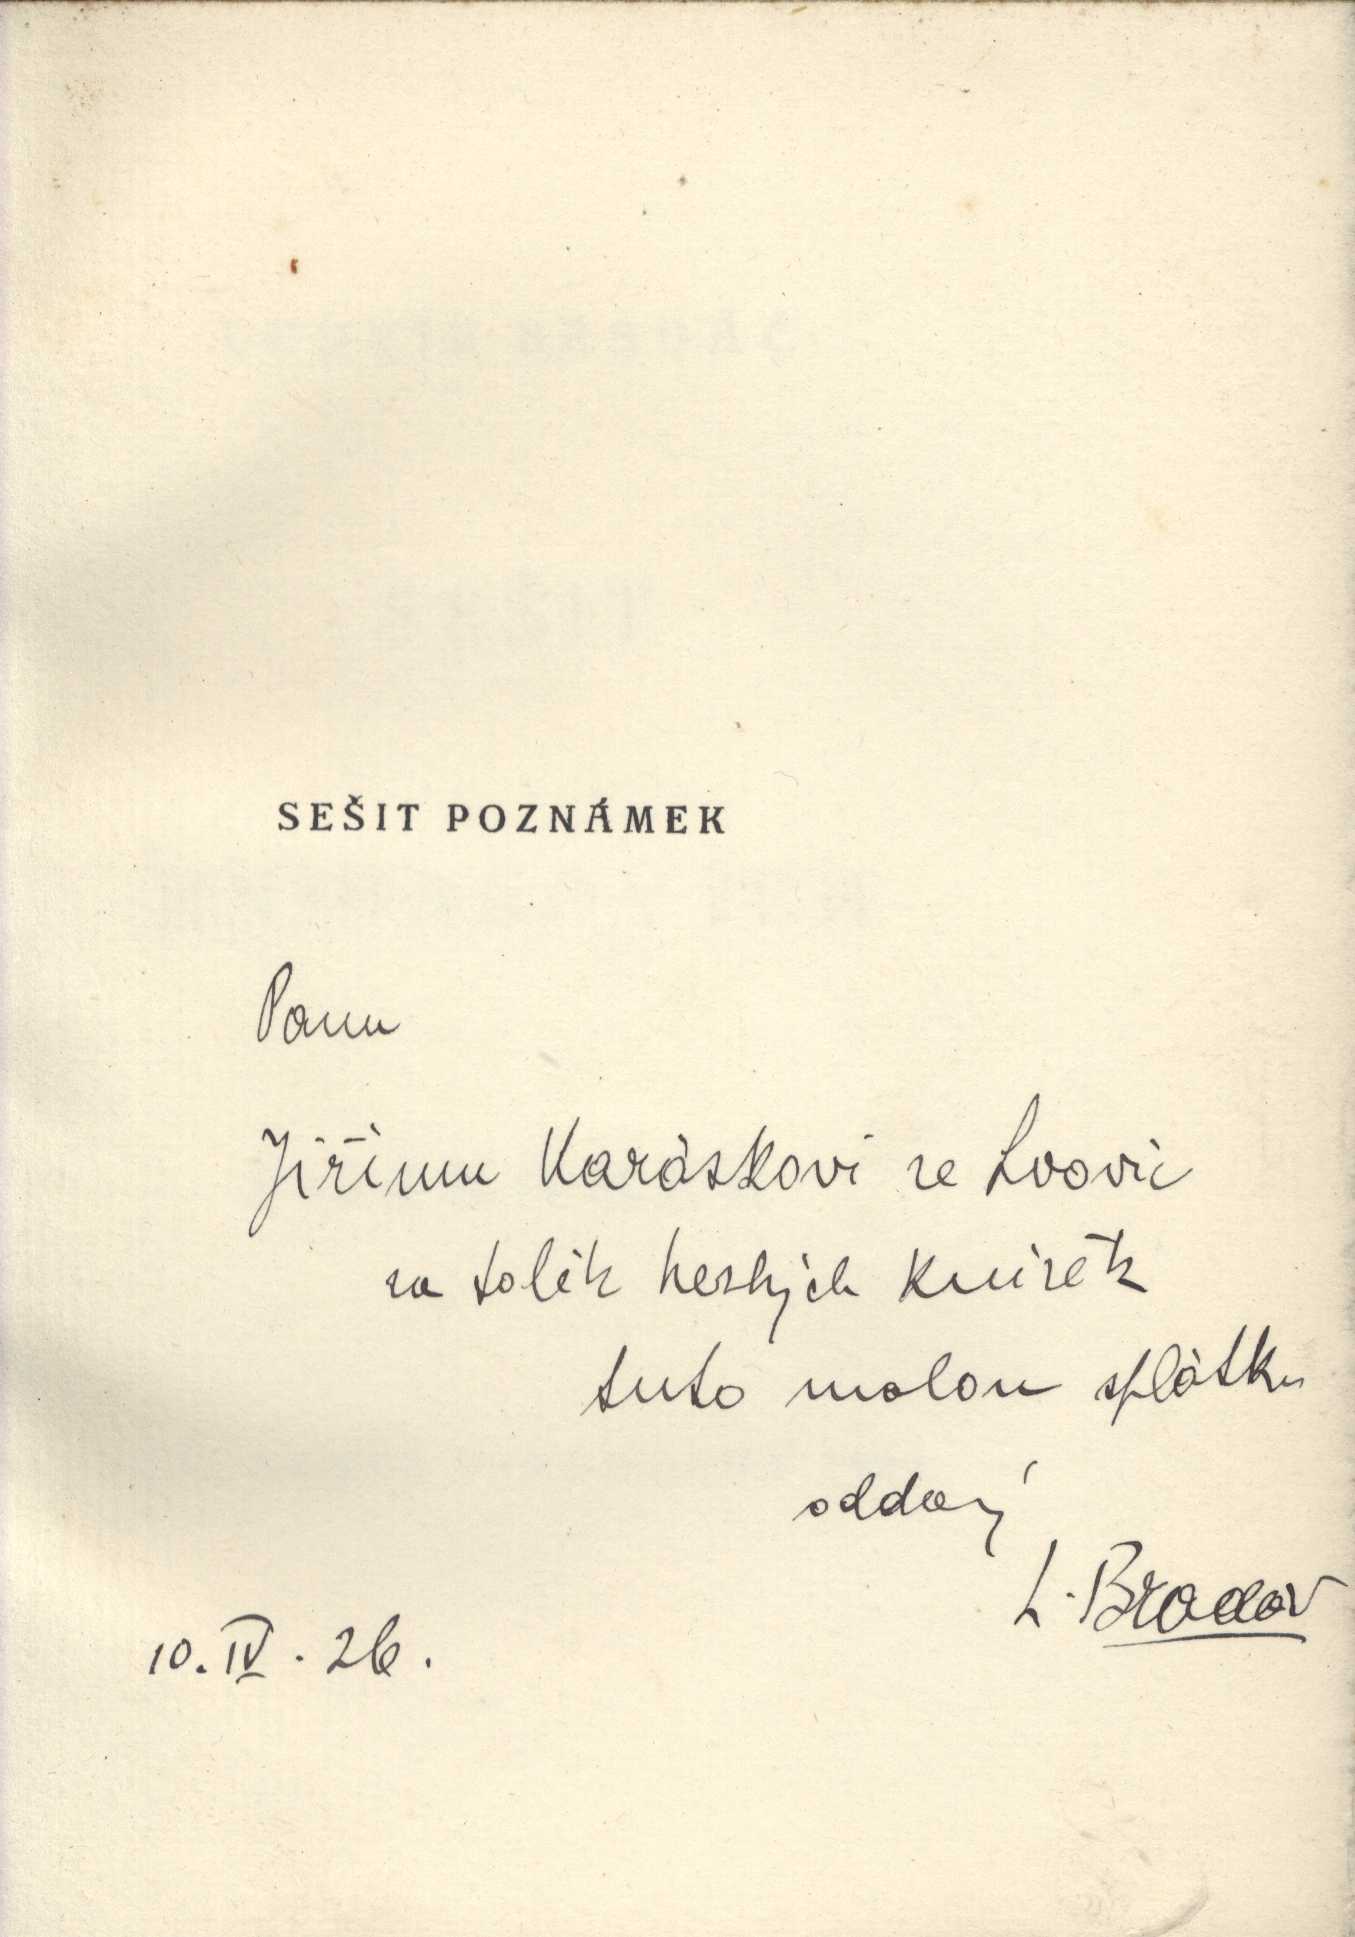 SEŠIT POZNÁMEK
Panu
Jiřímu Karáskovi ze Lvovic
za tolik hezkých knížek
tuto malou splátku
oddaný
L. Bradáč
10. IV. 26.